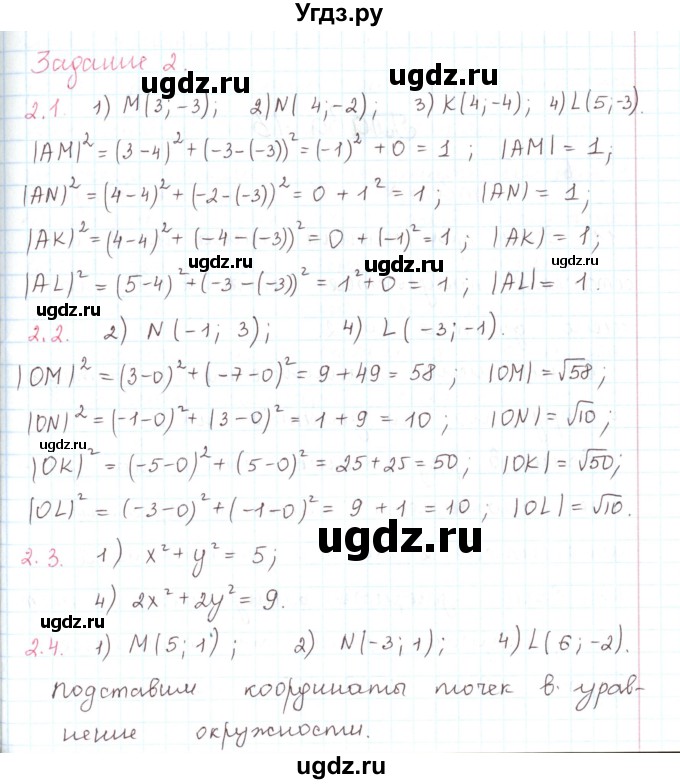 Угдз.ру
Задание 2.
ugdz.ru ugdz.ru
2.1. 1) M(3;-3); 2) N( 4;-2); 3) K(4;-4); 4) L(5;-3).
|AM|² = (3-4)² + (-3-(-3))² = (-1)² + 0 = 1 ; |AM| = 1;
|AN)² = (4-4)² + (-2-(-3))² = 0 + 1² = 1 ; |AN) = 1;
|AK)² = (4-4)² + (-4-(-3))² = 0 + (-1)² = 1 ; |AK) = 1;
ugdz.ru ugdz.ru ugdz.ru
|AL|² = (5-4)² + (-3-(-3))² = 1² + 0 = 1 ; |AL| = 1.
ugdz.ru
2.2. 2) N(-1; 3); 4) L(-3;-1).
|OM|² = (3-0)² + (-7-0)² = 9 + 49 = 58 ; |OM| = √58;
|ON|² = (-1-0)² + (3-0)² = 1 + 9 = 10 ; |ON| = √10;
ugdz.ru
|OK)² = (-5-0)² + (5-0)² = 25 + 25 = 50; |OK| = √50;
|OL)² = (-3-0)² + (-1-0)² = 9 + 1 = 10 ; |OL| = √10.
ugdz.ru
2.3. 1) x² + y² = 5;
4) 2x² + 2y² = 9.
ugdz.ru ugdz.ru
2.4. 1) M(5; 1) ; 2) N(-3; 1); 4) L(6;-2).
Подставим координаты точек в урав-
нение окружности.
ugdz.ru ugdz.ru
ugdz.ru